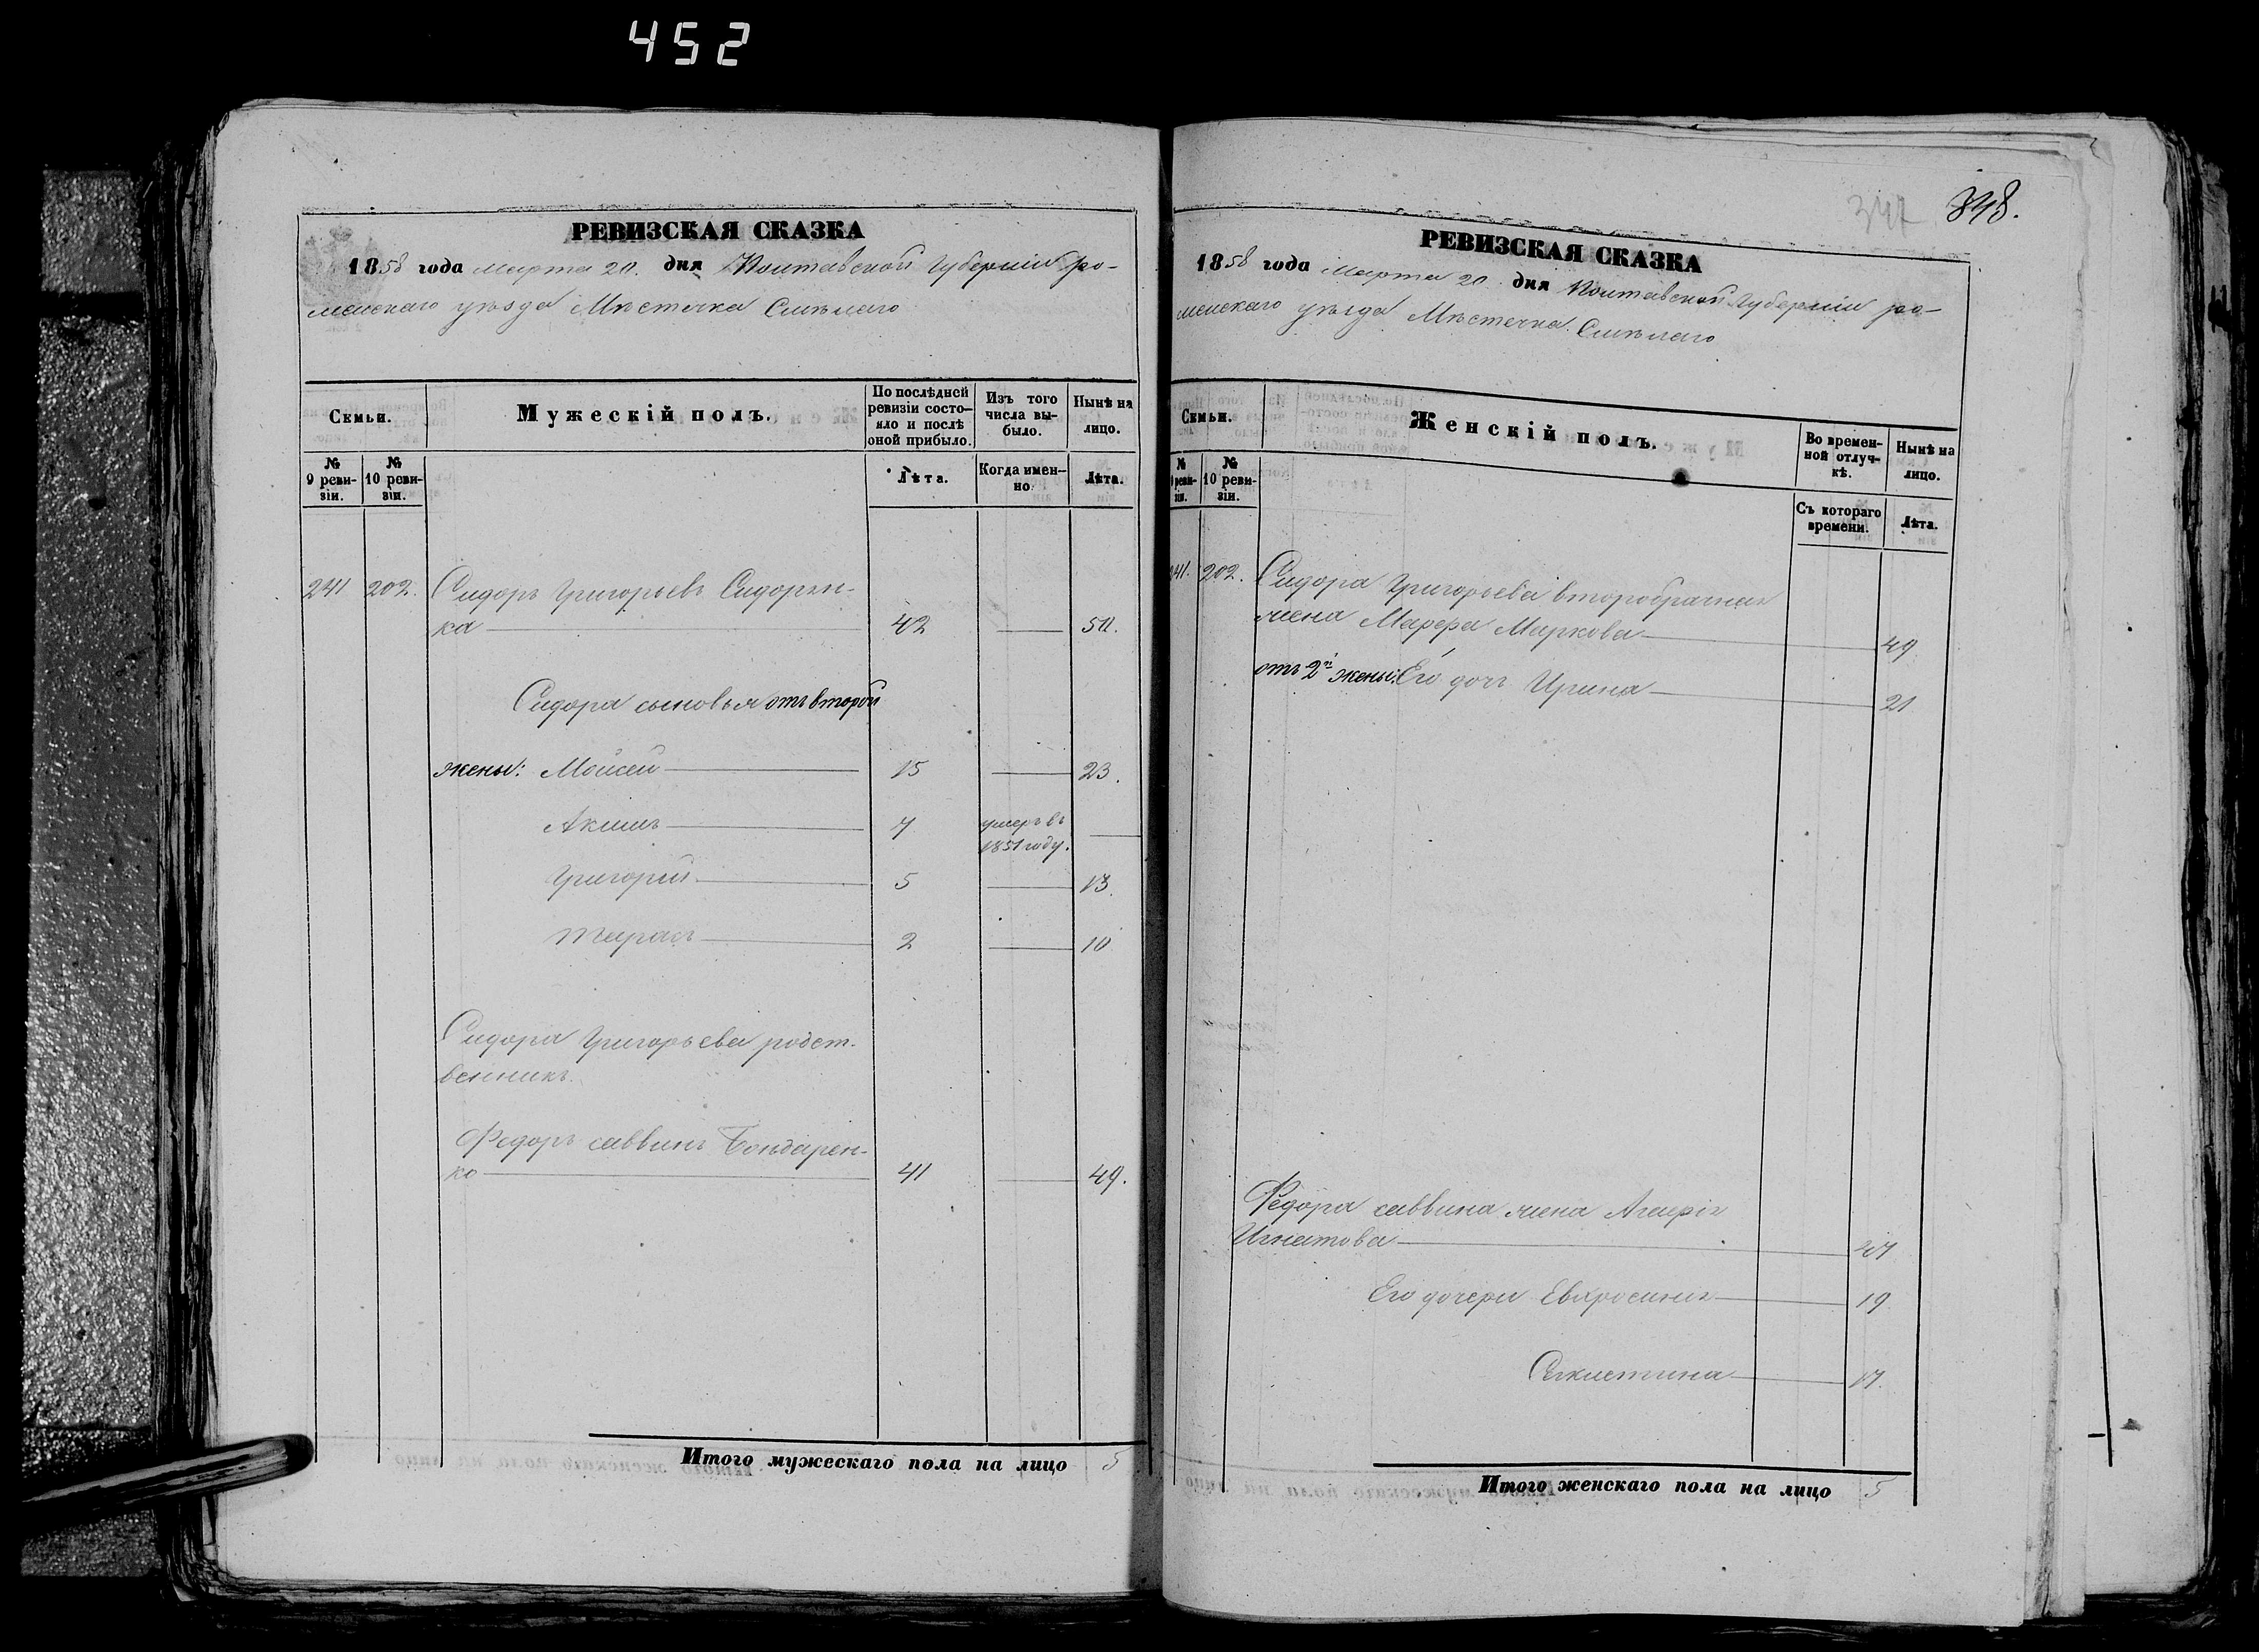 452
РЕВИЗСКАЯ СКАЗКА
1858 года Марта 20. дня Полтавской Губерніи ро-
менскаго уѣзда Мѣстечка Смѣлаго
Скмьи.
Мужескій полъ.
По послѣдней ревизіи состо-яло и послѣ оной прибыло.
Изъ того числа вы-было.
Нынѣ на лицо.
№ 9 реви-зіи.
№ 10 реви-зіи.
Лѣта.
Когда имен-но.
Лѣта.
241 202. Сидоръ Григорьевъ Сидорен-
ка 42 50.
Сидора сыновья отъ второй
жены: Мойсей 15 23.
Акимъ 7 умеръ въ 1851 году.
Григорій 5 13.
Тарасъ 2 10
Сидора Григорьева родст-
венникъ.
Федоръ саввинъ Бондарен-
ко 41 49.
Итого мужескаго пола на лицо 5
347 348.
РЕВИЗСКАЯ СКАЗКА
1858 года Марта 20 дня Полтавской Губерніи ро-
менскаго уѣзда Мѣстечка Смѣлаго
Скмьи.
Женскій полъ.
Во времен-ной отлуч-кѣ.
Нынѣ на лицо.
№ 9 реви-зіи.
№ 10 реви-зіи.
Съ котораго времени.
Лѣта.
241. 202. Сидора Григорьева второбрачная
жена Марфа Маркова 49
отъ 2й жены: Его дочь Ирина 21
Федора саввина жена Агафія
Игнатова 47
Его дочери Евфросинія 19
17.
Итого женскаго пола на лицо 5